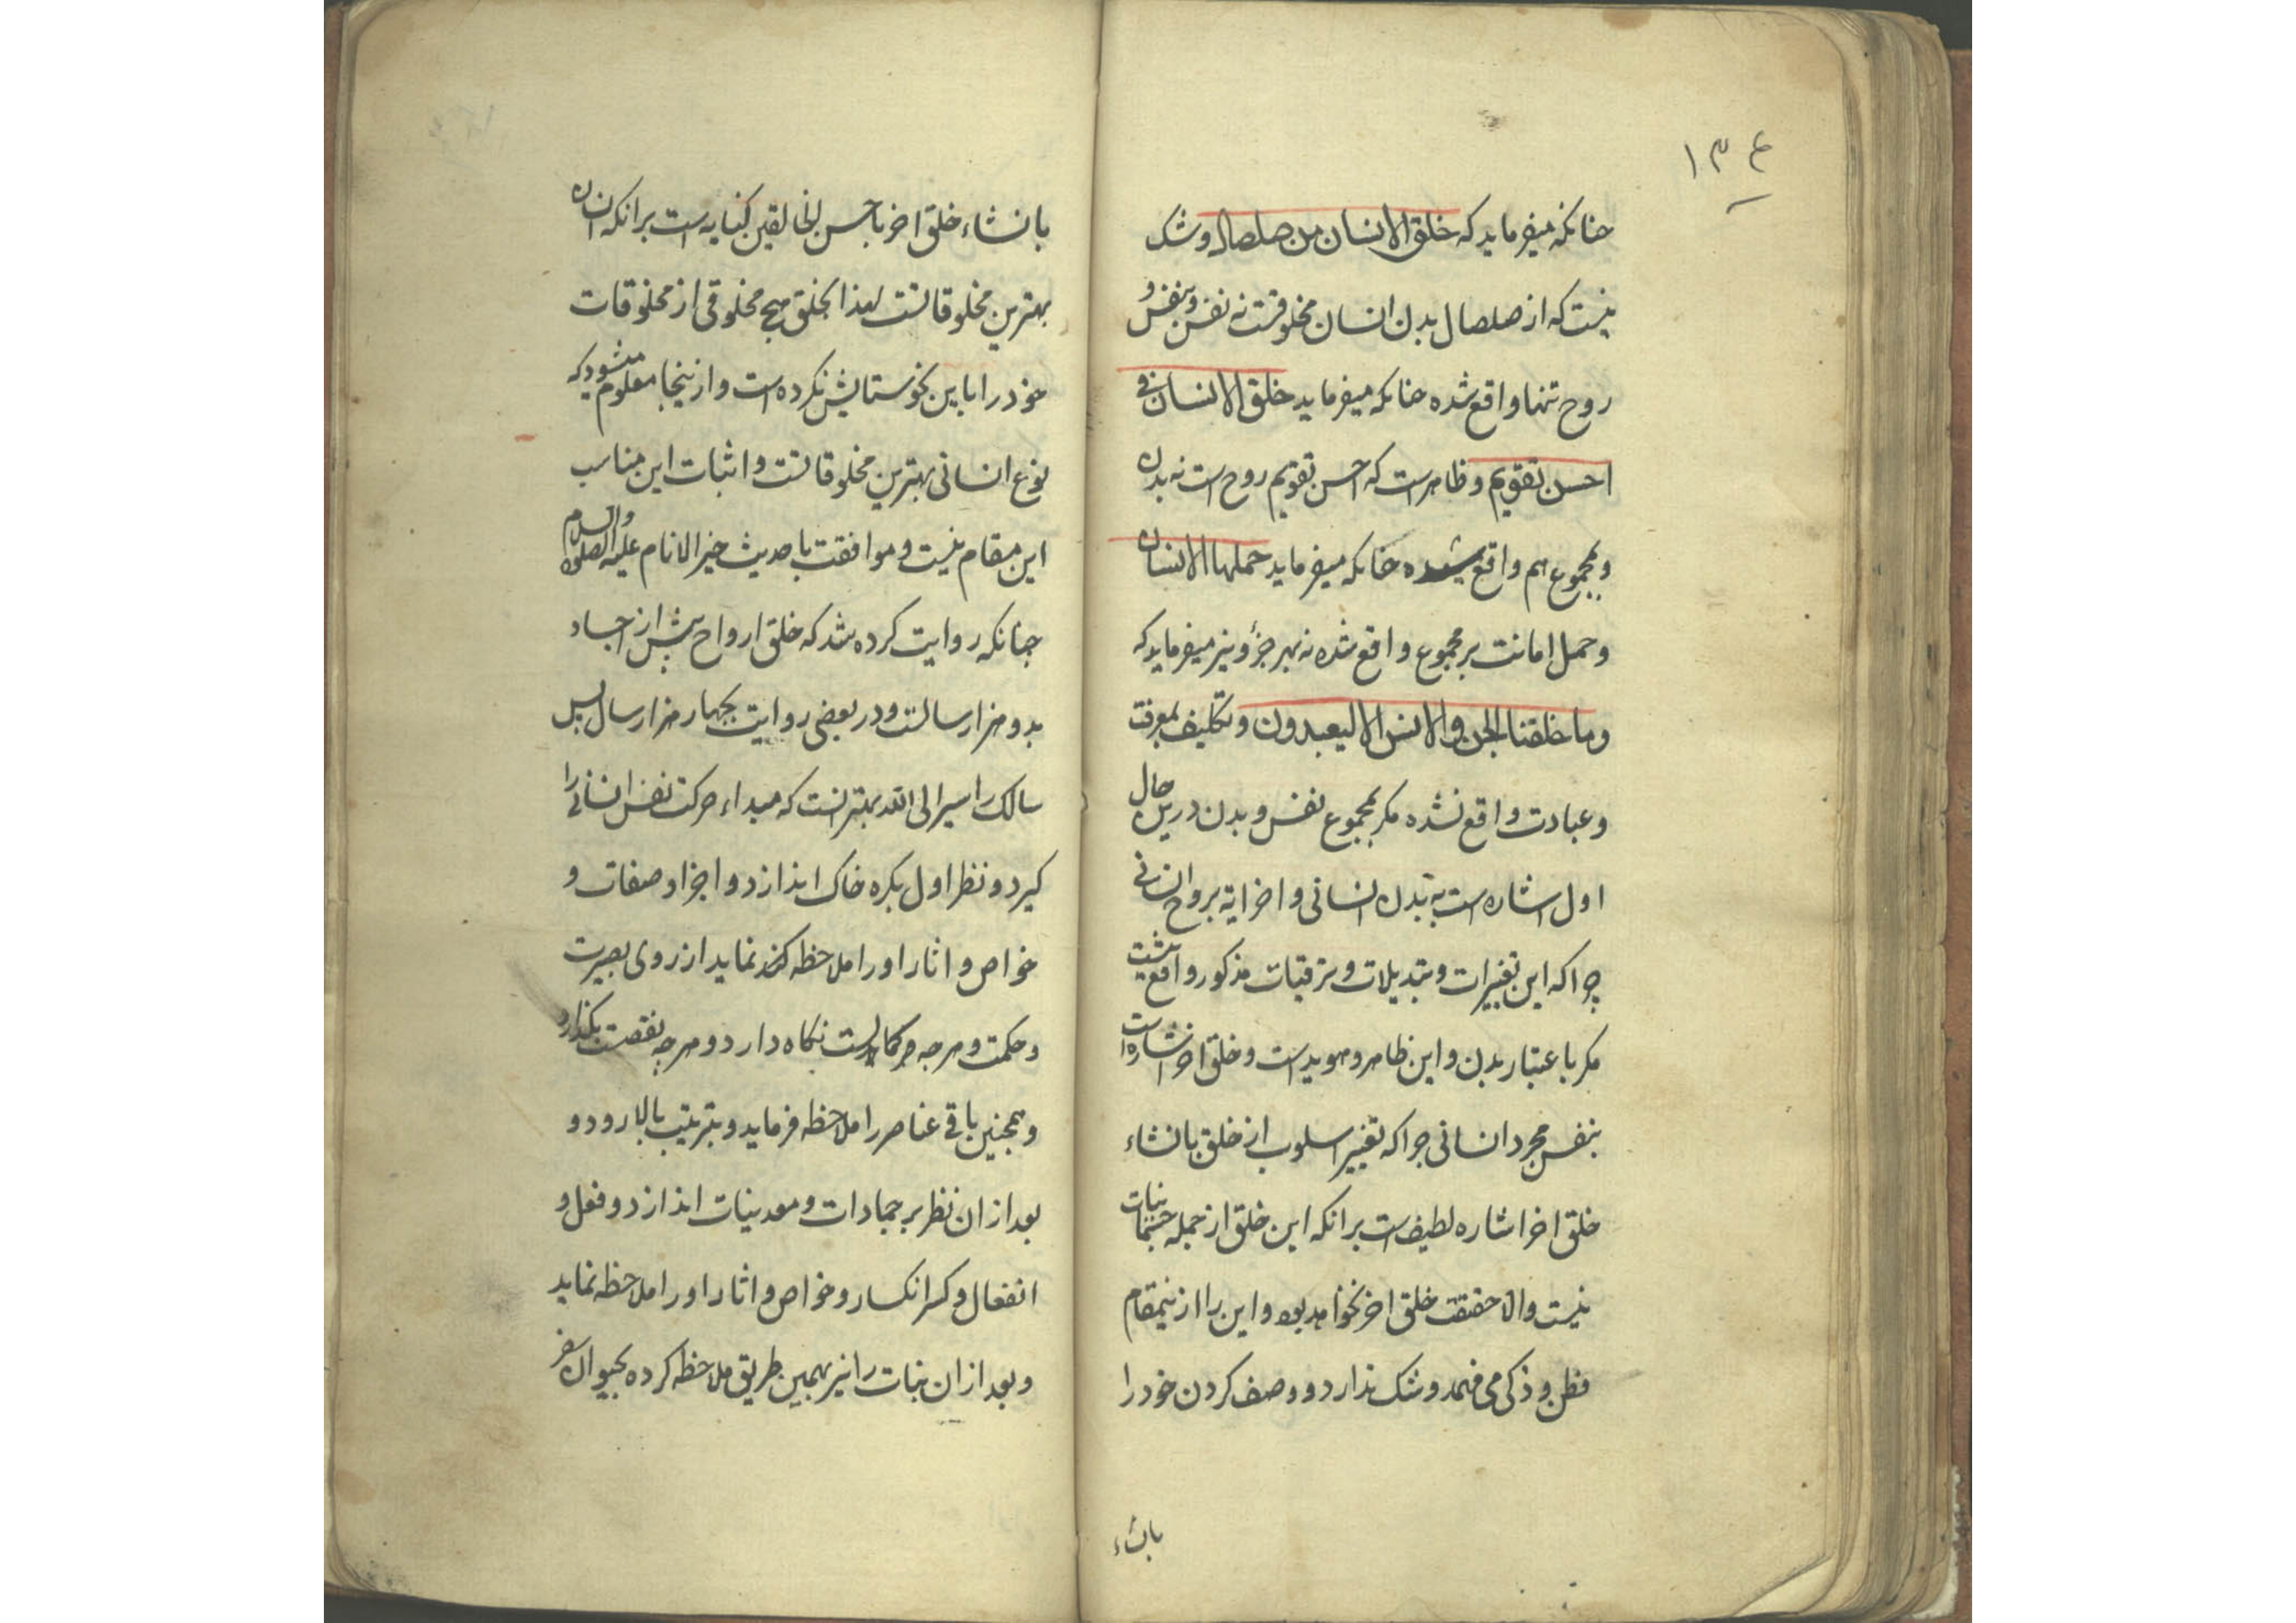 ۱۳۴
چنانکه میفرماید که خلق الانسان من صلصال و شک
نیست که از صلصال بدن انسان مخلوقست نه نفس و بنفس و
روح تنها واقع شده چنانکه میفرماید خلق الانسان فی
احسن تقویم و ظاهر است که احسن تقویم روح است نه بدن
و بمجموع هم واقع شده چنانکه میفرماید حملها الانسان
و حمل امانت بر مجموع واقع شده نه بهر جزؤ و نیز میفرماید که
و ما خلقنا الجن و الانس الا لیعبدون و تکلیف بمعرفت
و عبادت واقع نشده مکر بمجموع نفس و بدن درین حال
اول اشاره است به بدن انسانی و اخر ایه بروح انسانی
چرا که این تغییرات و تبدیلات و ترقیات مذکور واقع نیست
مکر باعتبار بدن و این ظاهر و هویداست و خلق اخر اشاره است
بنفس مجرد انسانی چرا که تغییر اسلوب از خلق بانشاء
خلق اخر اشاره لطیف است برانکه این خلق از جمله جسمانیات
نیست والا حقیقت خلق اخر نخواهد بود و این را ازینمقام
فطن و ذکی می فهمد و شک ندارد و وصف کردن خود را
بانشاء
بانشاء خلق اخر باحسن الخالقین کنایه است برانکه انسان
بهترین مخلوقاتست لهذا بخلق هیچ مخلوقی از مخلوقات
خود را باین نحو ستایش نکرده است و ازینجا معلوم میشود که
نوع انسانی بهترین مخلوقاتست و اثبات این مناسب
این مقام نیست و موافقت با حدیث خیر الانام علیه الصلوة والسلام
چنانکه روایت کرده شد که خلق ارواح پیش از اجساد
بدو هزار سالست و در بعضی روایت بچهار هزار سال پس
سالک را سیر الی الله بهتر انست که مبداء حرکت نفس انسانی را
کیرد و نظر اول بکره خاک اندازد و اجزا و صفات و
خواص و اثار او را ملاحظه نماید از روی بصیرت
و حکمت و هرچه کمالست نکاه دارد و هرچه نقصست بکذارد
و همچنین باقی عناصر را ملاحظه فرماید و بترتیب بالا رود و
بعد ازان نظر بر جمادات و معدنیات اندازد و فعل و
انفعال و کسر انکسار و خواص و اثار او را ملاحظه نماید
و بعد ازان نبات را نیز بهمین طریق ملاحظه کرده بحیوان سفر